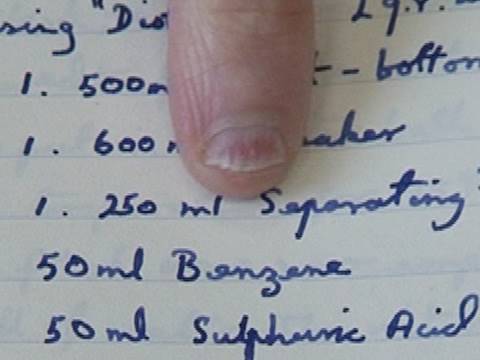 1. 500m - bottom
1. 600 aker
1. 250 ml Separating
50ml Benzene
50ml Sulphuric Acid